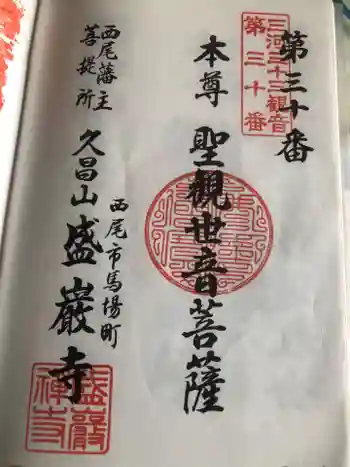 三河三十三観音
第三十番
第三十番
本尊 聖觀世音菩薩
西尾藩主
菩提所
西尾市馬場町
久昌山 盛巖寺
盛巖
禅寺